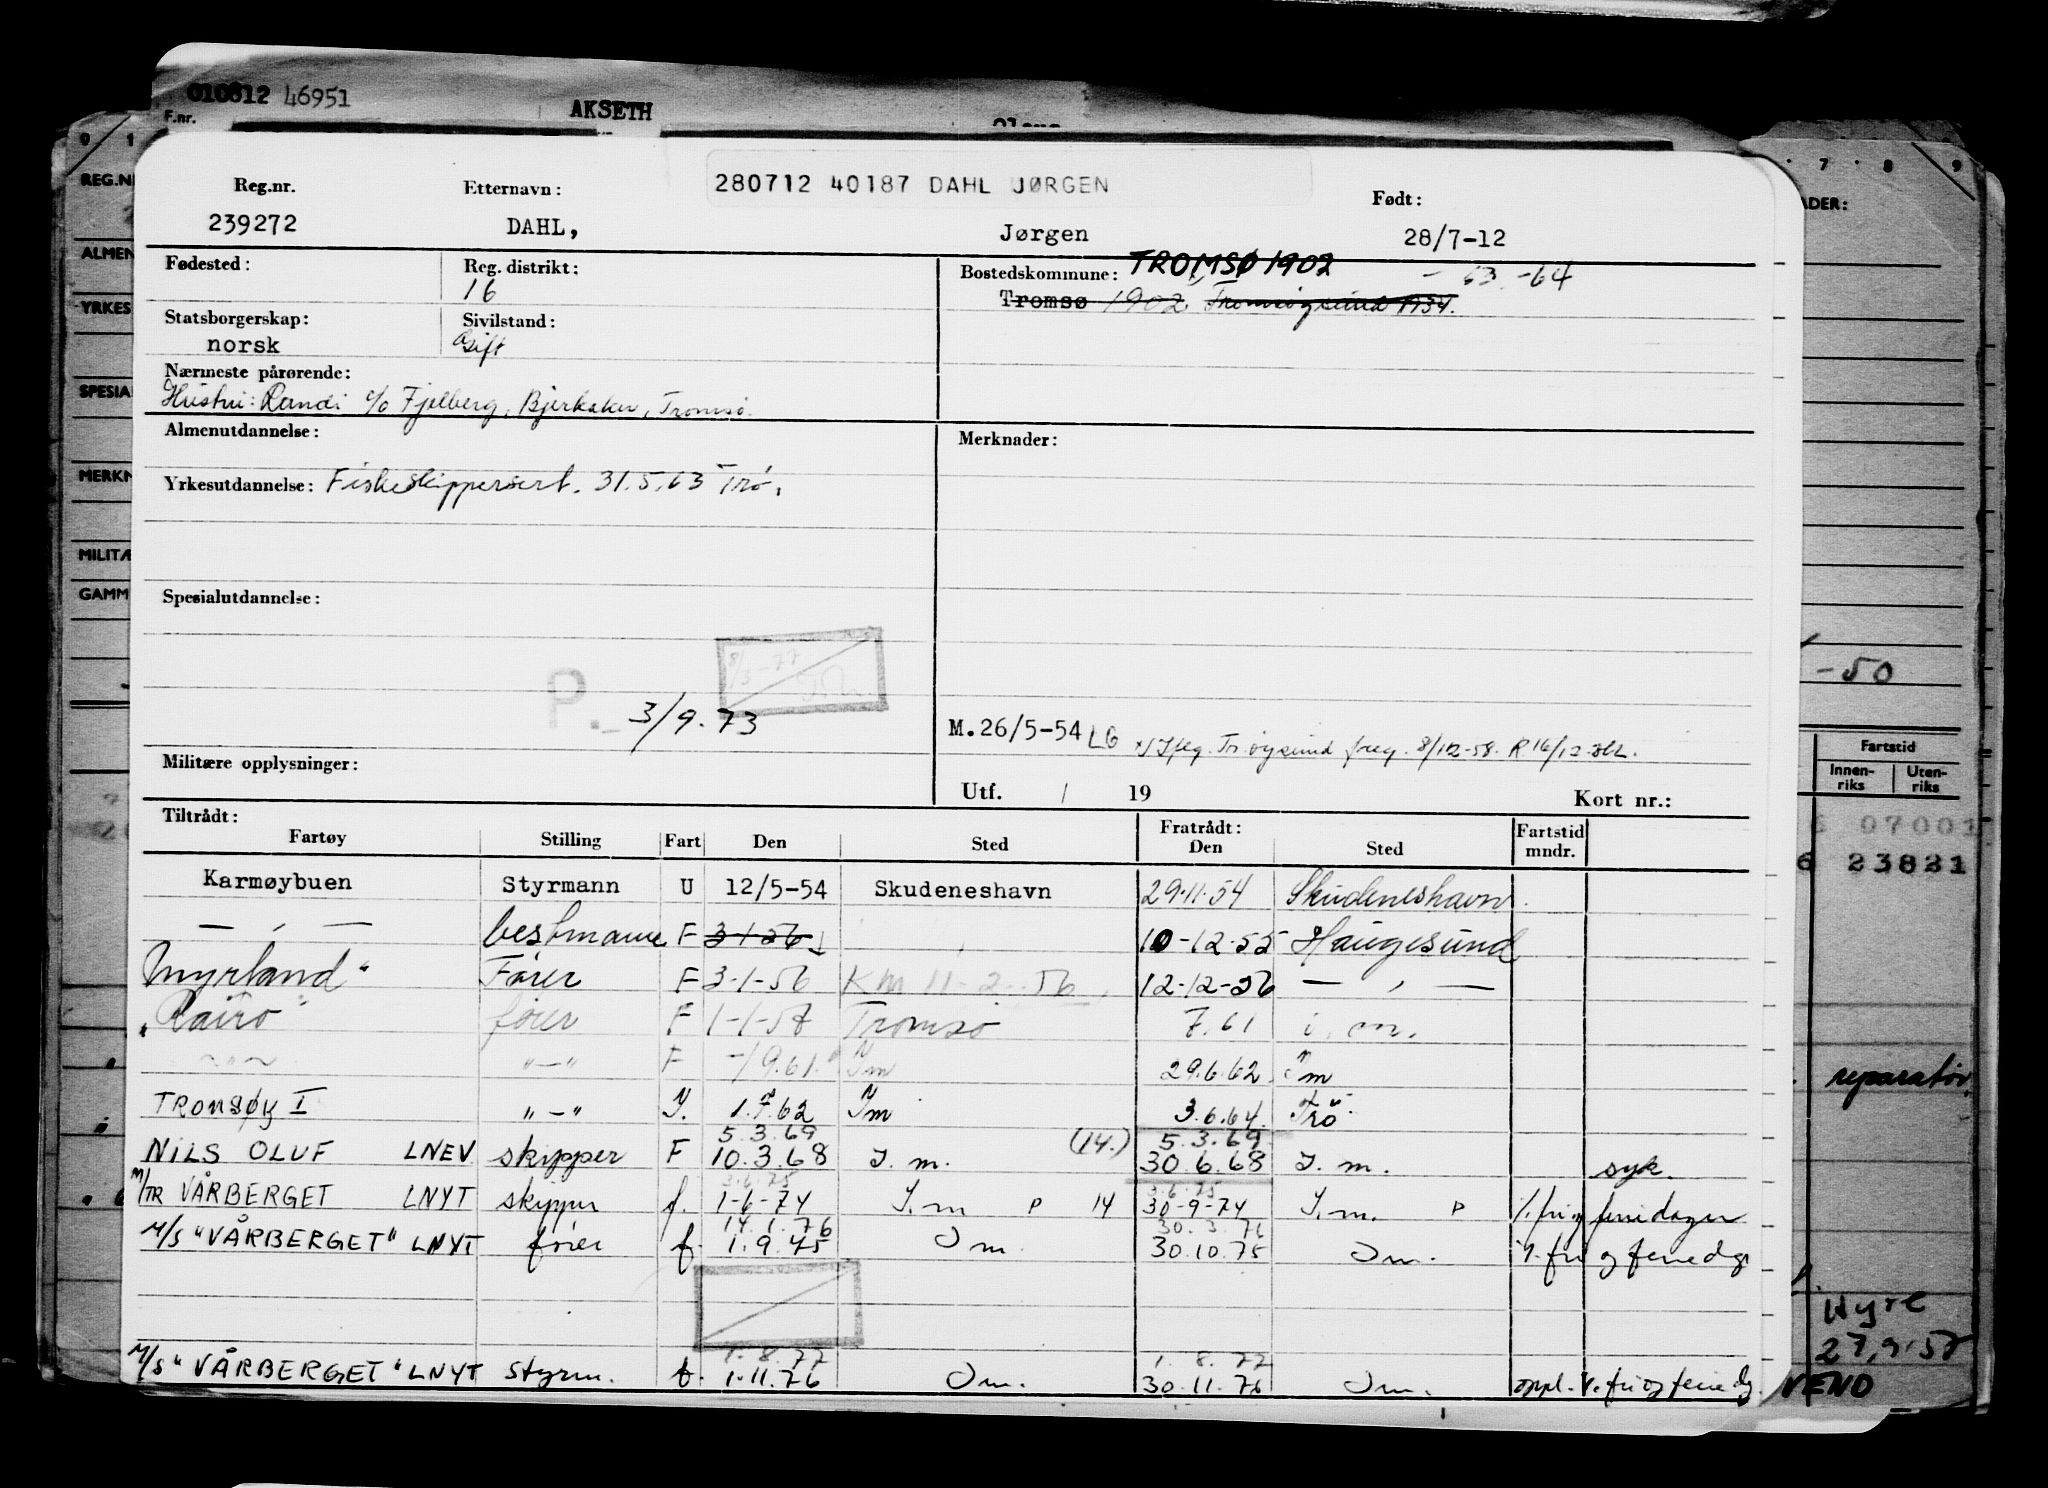 010812 46951
F.nr.
AKSETH
0 1
REG.N
ALMEN
YRKES
SPESIA
MERKN
MILITÆ
GAMM
7 8 9
ADER:
-50
Fartstid
Innen-riks Uten-riks
07001
23821
reparatør
Hyre
VENO
280712 40187 DAHL JØRGEN
Reg.nr. Etternavn: Født:
239272 DAHL, Jørgen 28/7-12
Fødested: Reg. distrikt: Bostedskommune: TROMSØ 1902 - 63 -64
16 Tromsø 1902, Tromsøysund 1934.
Statsborgerskap: Sivilstand:
norsk Gift
Nærmeste pårørende:
Hustru: Randi c/o Fjelberg, Bjerkaker, Tromsø.
Almenutdannelse: Merknader:
Yrkesutdannelse: Fiskeskippersert. 31.5.63 Trø.
Spesialutdannelse:
8/3-77
P. 3/9.73
M.26/5-54 LG x/ Ifлg. Tr.øysund freg. 8/12-58. R 16/12
Militære opplysninger:
Utf. / 19 Kort nr.:
Tiltrådt: Fratrådt: Fartstid
Fartøy Stilling Fart Den Sted Den Sted mndr.
Karmøybuen Styrmann U 12/5-54 Skudeneshavn 29.11.54 Skudeneshavn
— " — bestmann F 3-1-56 10-12-55 Haugesund
Myrland" Fører F 3-1-56 KM 11-2-56 12-12-56 — " —
"Rairo" fører F 1-1-57 Tromsø 7.61 i. m.
"-" F -/9.61. Im 29.6.62 Im
TROMSØY I "-" I. 1.7.62 Im 3.6.64 Trø
5.3.69 (14.) 5.3.69
NILS OLUF LNEV skipper F 10.3.68 I. m. 30.6.68 I. m. syk.
3.6.75 3.6.75
M/TR VÅRBERGET LNYT skipper f. 1-6-74 I.m P 14 30-9-74 I.m. P %.fri og feriedager
14.1.76 30.3.76
M/S "VÅRBERGET" LNYT fører f. 1.9.75 Im. 30.10.75 Im. %.fri og feriedg
1.8.77 1.8.77
M/S "VÅRBERGET" LNYT styrm. f. 1.11.76 Im. 30.11.76 Im. oppl. v. fri og feriedg.